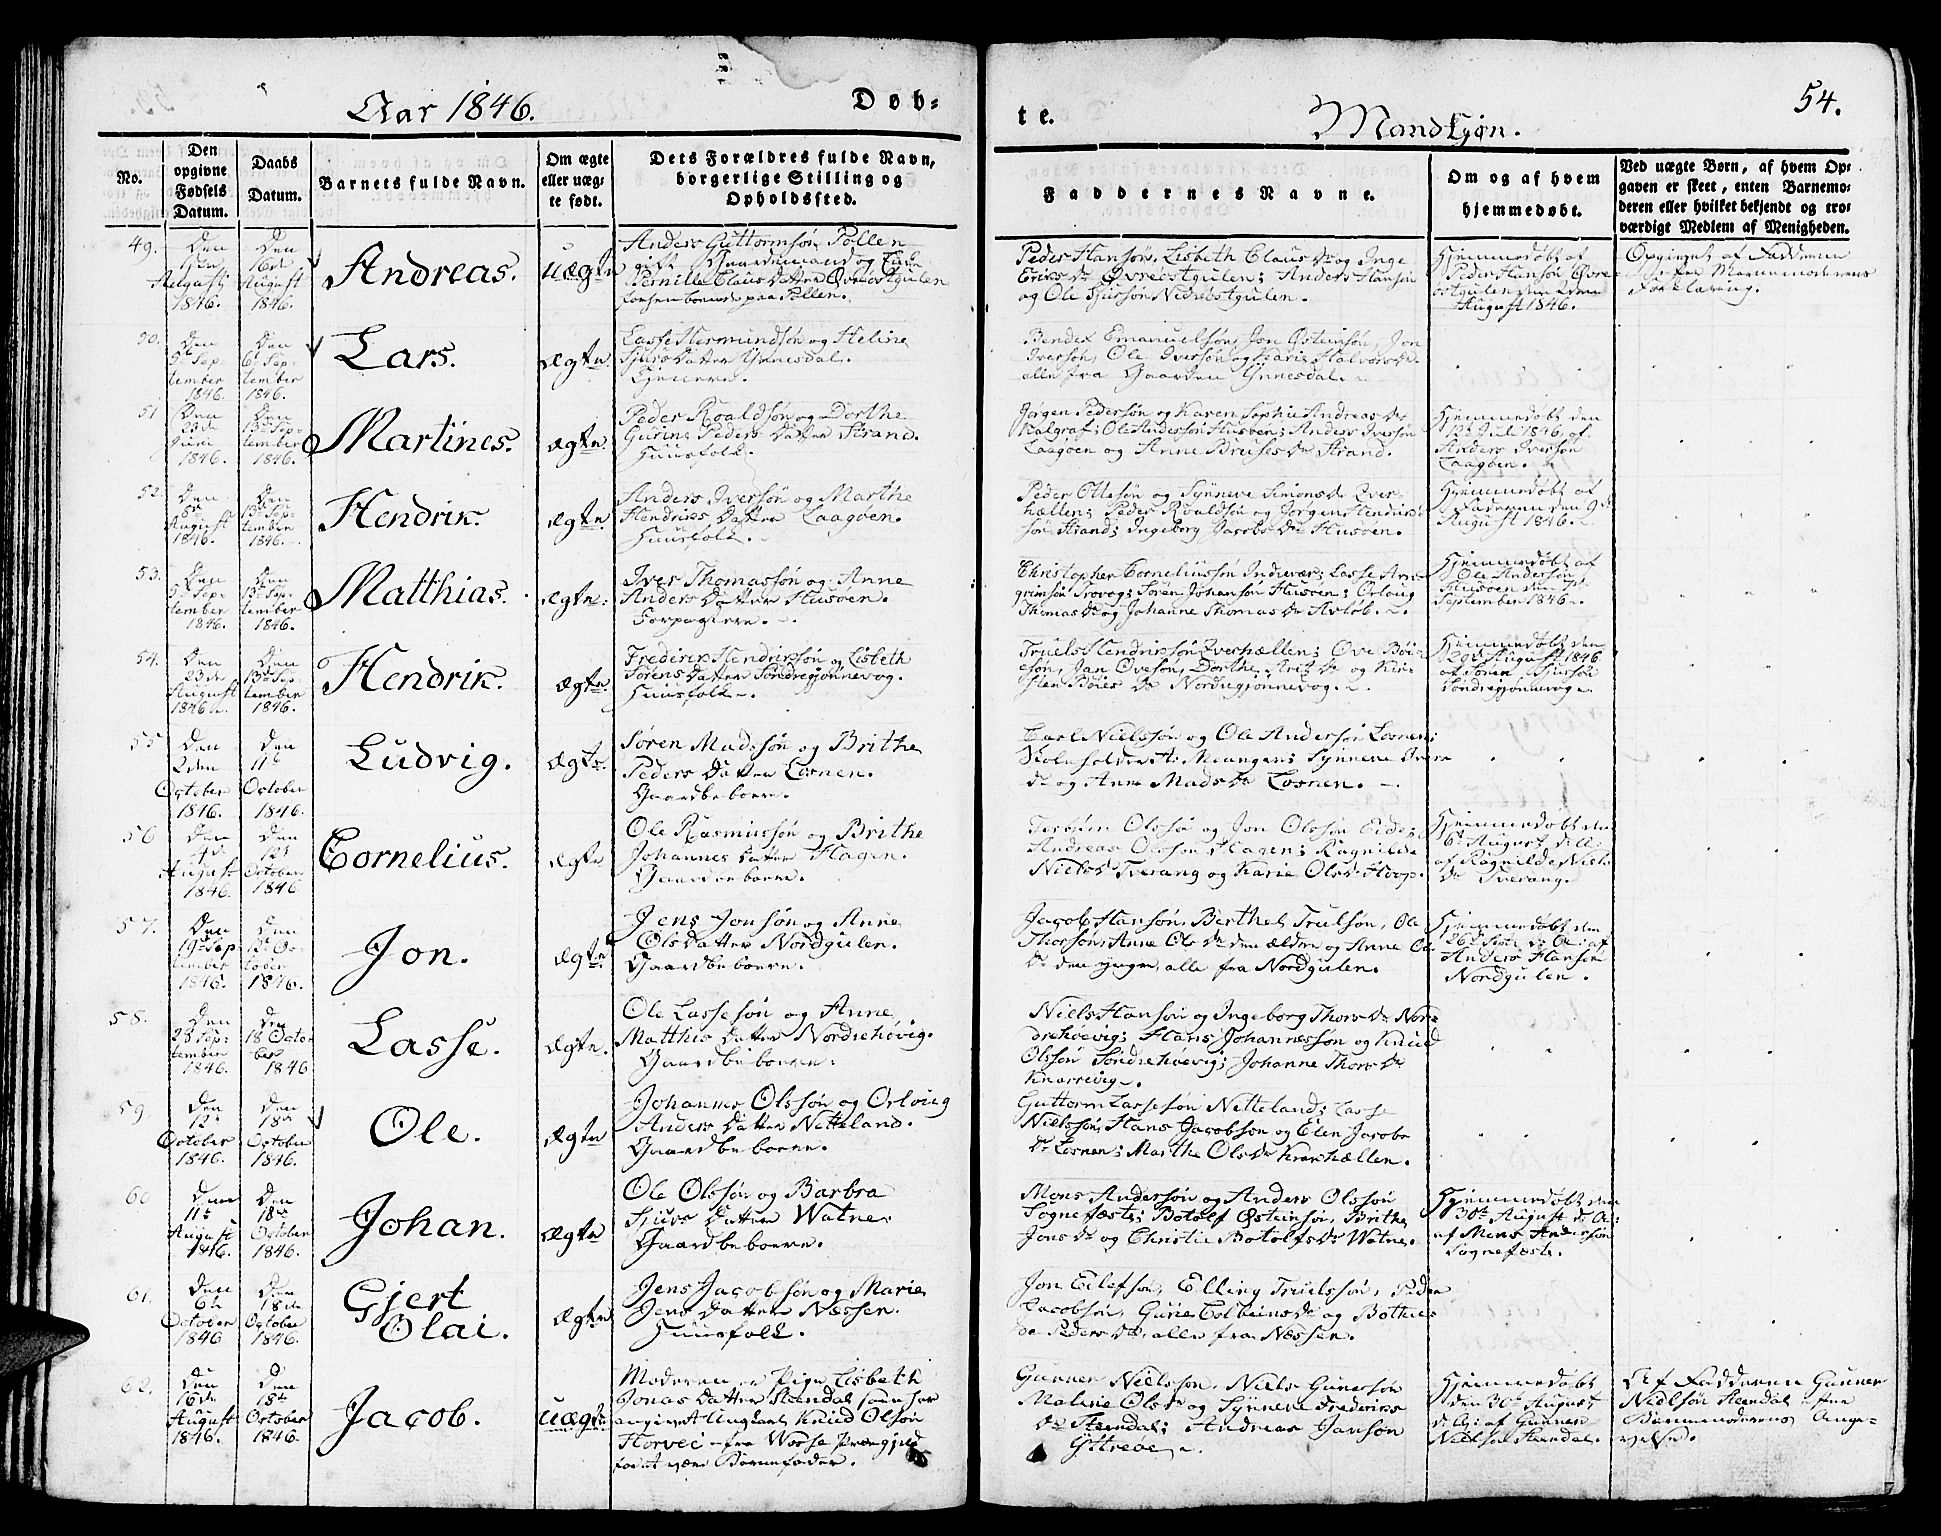 Aar 1846.
Døb-
te.
Mandkjøn.
54.
No.
Den
opgivne
Fødsels
Datum.
Daabs
Datum.
Barnets fulde Navn.
Om ægte
eller uæg-
te født.
Dets Forældres fulde Navn,
borgerlige Stilling og
Opholdssted.
Faddernes Navne.
Om og af hvem
hjemmedøbt.
Ved uægte Børn, af hvem Op-
gaven er skeet, enten Barnemo-
deren eller hvilket bekjendt og tro-
værdigt Medlem af Menigheden.
49.
Den
August
1846.
Den
16de
August
1846.
Andreas.
uægte
Anders Guttormsøn Pollen
gift Gaardmand og
Pernille Claus Datter Øvreøstgulen
paa Pollen.
Peder Hansøn, Lisbeth Claus Dr og Inge
Eriks Dr Øvreøstgulen; Anders Hansøn
og Ole Sjursøn Nedreøstgulen.
Hjemmedøbt af
Peder Hansøn Øvre-
østgulen den 2den
August 1846.
Opgivet af Fadderne
efter Barnemoderens
Forklaring.
50.
Den
Sep-
tember
1846.
Den
6te Sep-
tember
1846.
Lars.
ægte
Lasse Hermundsøn og Heline
Sjurs Datter Ynnesdal.
Tjenere.
Bendix Emanuelsøn, Jon Østensøn, Jon
Iversøn, Ole Iversøn og Kari Halvors Dr
alle fra Gaarden Ynnesdal.
51
Den
23de
Juni
1846.
Den
13de Sep-
tember
1846.
Martines.
ægte
Peder Roaldsøn og Dorthe
Gurine Peders Datter Strand.
Huusfolk.
Jørgen Pedersøn og Karen Sophie Andreas Dr
Kalgraf; Ole Andersøn Husøen; Anders Iversøn
Laagøen og Anne Bruses Dr Strand.
Hjemmedøbt den
12te Juli 1846 af
Anders Iversøn
Laagøen.
52.
Den
8de
August
1846.
Den
13de Sep-
tember
1846.
Hendrik.
ægte
Anders Iversøn og Marthe
Hendriks Datter Laagøen.
Huusfolk.
Peder Ottesøn og Synneve Simons Dr Qver-
hællen; Peder Roaldsøn og Jørgen Hendrik-
søn Strand; Ingeborg Jacobs Dr Husøen.
Hjemmedøbt af
Faderen den 9de
August 1846.
53.
Den
Sep-
tember
1846.
Den
13de Sep-
tember
1846.
Matthias.
ægte
Iver Thomassøn og Anne
Anders Datter Husøen.
Forpagtere.
Christopher Corneliussøn Indrevær; Lasse Arn-
grimsøn Trovog; Søren Johansøn Husøen; Orloug
Thomas Dr og Johanne Thomas Dr Avløb.
Hjemmedøbt af
Ole Andersøn
Husøen den
September 1846.
54.
Den
23de
August
1846.
Den
13de Sep-
tember
1846.
Hendrik.
ægte
Frederik Hendriksøn og Lisbeth
Sørens Datter Søndregjønnevog.
Huusfolk.
Truels Hendriksøn Qverhællen; Ove Bøie-
søn, Jan Ovesøn, Dorthe Dr og Kir-
sten Bøies Dr Nordregjønnevog.
Hjemmedøbt den
29de August 1846
af Søren Sjursøn
Søndregjønnevog.
55
Den
2den
October
1846.
Den
11te
October
1846.
Ludvig.
ægte
Søren Madssøn og Brithe
Peders Datter Losnen.
Gaardbeboere.
Carl Nielssøn og Ole Andersøn Losnen;
Skoleholder A: Meungen; Synneve
Dr og Anne Mads Dr Losnen.
56
Den
August
1846.
Den
12te
October
1846.
Cornelius.
ægte
Ole Rasmussøn og Brithe
Johannes Datter Hagen.
Gaardbeboere.
Torbjørn Olssøn og Jon Olssøn Eide;
Andreas Olssøn Hagen; Ragnilde
Niels Dr Tverang og Karie Ols Dr Hoop.
Hjemmedøbt den
6te August d: A:
af Ragnilde Niels
Dr Tverang.
57.
Den
19de Sep-
tember
1846.
Den
12te Oc-
tober
1846.
Jon.
ægte
Jens Jonsøn og Anne
Ols Datter Nordgulen.
Gaardbeboere.
Jacob Hansøn, Berthel Truelsøn, Ole
Thorsøn, Anne Ols Dr den ældre og Anne Ols
Dr den yngre, alle fra Nordgulen.
Hjemmedøbt den
26de Sept: d: A: af
Anders Hansøn
Nordgulen.
58.
Den
28 Sep-
tember
1846.
Den
18 Octo-
ber
1846
Lasse.
ægte.
Ole Lassesøn og Anne
Matthis Datter Nordrehøvig.
Gaardbeboere.
Niels Hansøn og Ingeborg Thors Dr Nor-
drehøevig; Hans Johannessøn og Knud
Olssøn Søndrehøevig; Johanne Thors Dr
Knarrevig.
59.
Den
12te
October
1846.
Den
18de
October
1846.
Ole.
ægte
Johannes Olssøn og Orloug
Anders Datter Netteland.
Gaardbeboere.
Guttorm Lassesøn Netteland; Lasse
Nielssøn, Hans Jacobsøn og Elen Jacobs
Dr Losnen; Marthe Ols Dr Krakhællen.
60
Den
11te
August
1846.
Den
18de
October
1846.
Johan.
ægte
Ole Olssøn og Barbra
Sjurs Datter Watne.
Gaardbeboere.
Mons Andersøn og Anders Olssøn
Sognefæste; Botolf Østensøn, Brithe
Jons Dr og Christie Botolfs Dr Watne.
Hjemmedøbt den
30te August d: A:
af Mons Andersøn
Sognefæste.
61.
Den
6te
October
1846
Den
18de
October
1846.
Gjert
Olai.
ægte
Jens Jacobsøn og Marie
Jens Datter Næssen.
Huusfolk.
Jon Edlefsøn, Elling Truelssøn, Peder
Jacobsøn, Gurie Colbeins Dr og Bothie
Peders Dr, alle fra Næssen.
62.
Den
16de
August
1846.
Den
18de
October
1846.
Jacob.
uægte
Moderen er Pige Lisbeth
Jonas Datter Steendal som har
angivet Ungkarl Knud Olsøn
Horvei fra Præstegjeld
for at være Barnefader.
Gunner Nielssøn, Niels Gunersøn
Malene Ols Dr og Synneve Frederiks
Dr Steendal; Andreas Jansøn
Yttreøe.
Hjemmedøbt
den 30te August
d: A: af Gunner
Nielsøn Steendal.
Af Fadderen Gunner
Nielsøn Steendal efter
Barnemoderens Angi-
velse.